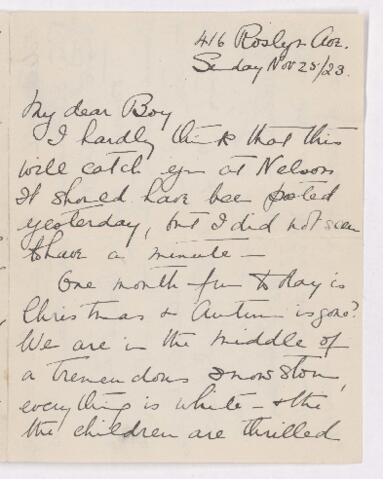 416 Roslyn Ave.
Sunday Nov 25/23.
My dear Boy
I hardly think that this
will catch you at Nelson
It should have been posted
yesterday, but I did not seem
to have a minute —
One month from today is
Christmas & Autumn is gone?
We are in the middle of
a tremendous snow storm,
everything is white — & the
the children are thrilled